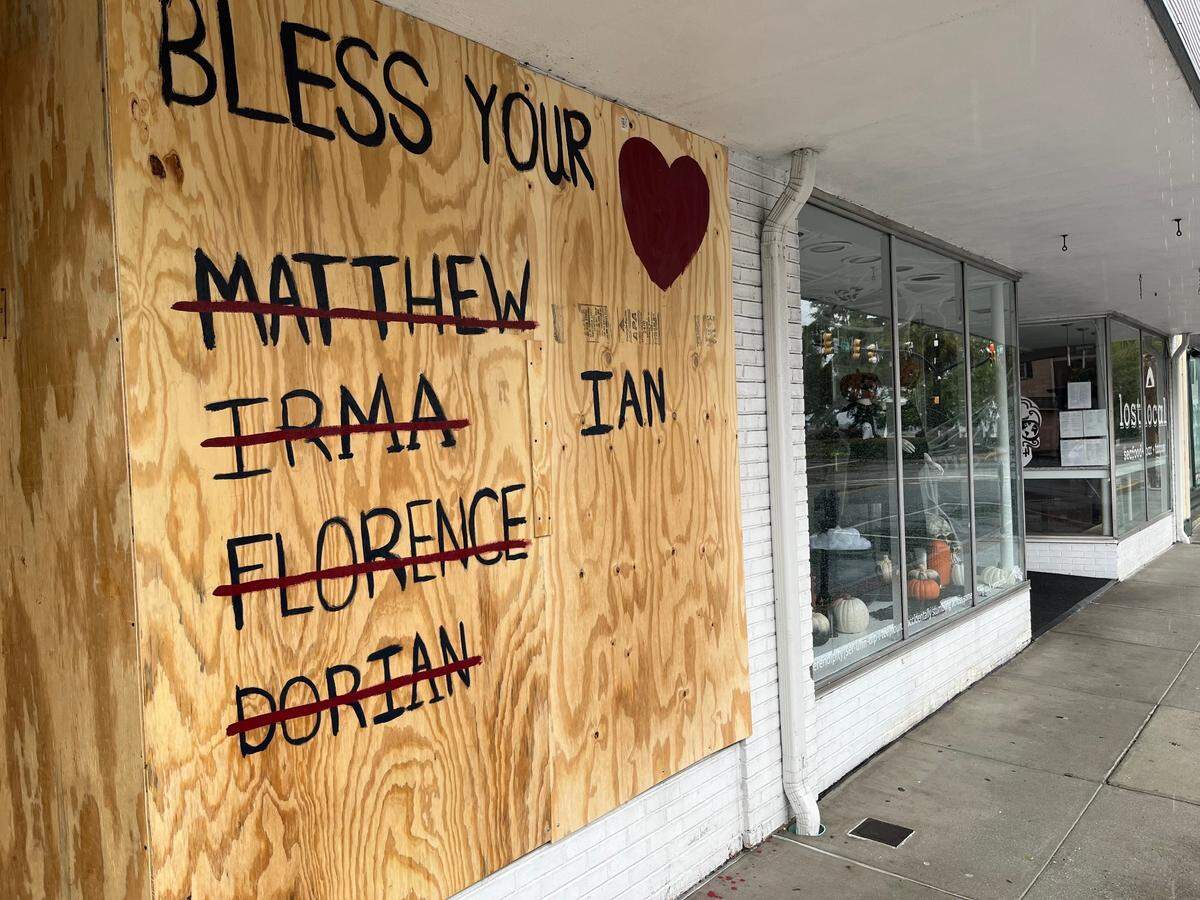 BLESS YOUR
MATTHEW
IRMA
IAN
FLORENCE
DORIAN
lost local